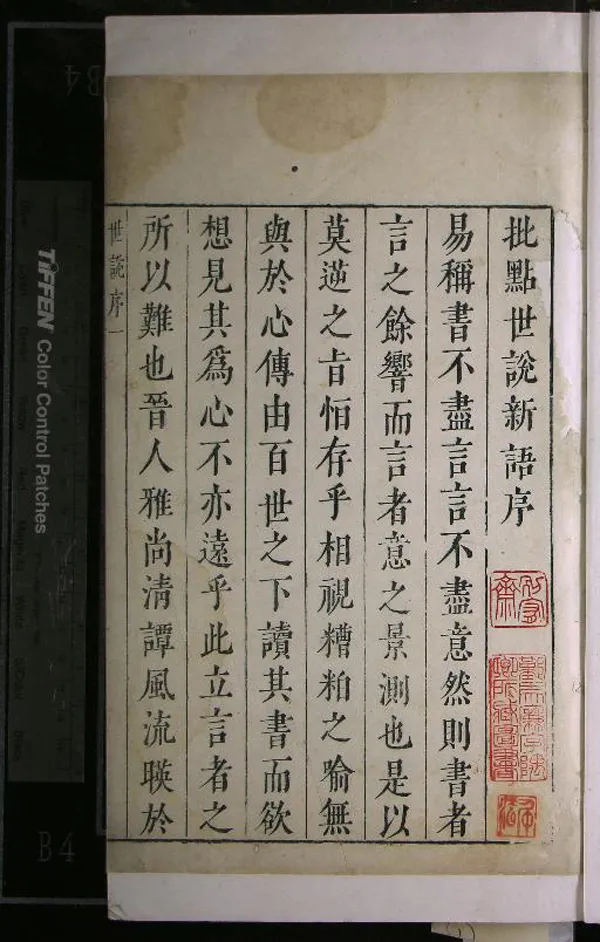 批點世說新語序
易稱書不盡言言不盡意然則書者
言之餘響而言者意之景測也是以
莫逆之旨怕存乎相視糟粕之喻無
與於心傳由百世之下讀其書而欲
想見其爲心不亦遠乎此立言者之
所以難也晉人雅尚清譚風流暎於
世說序一
TIFFEN Color Control Patches
B4
B4